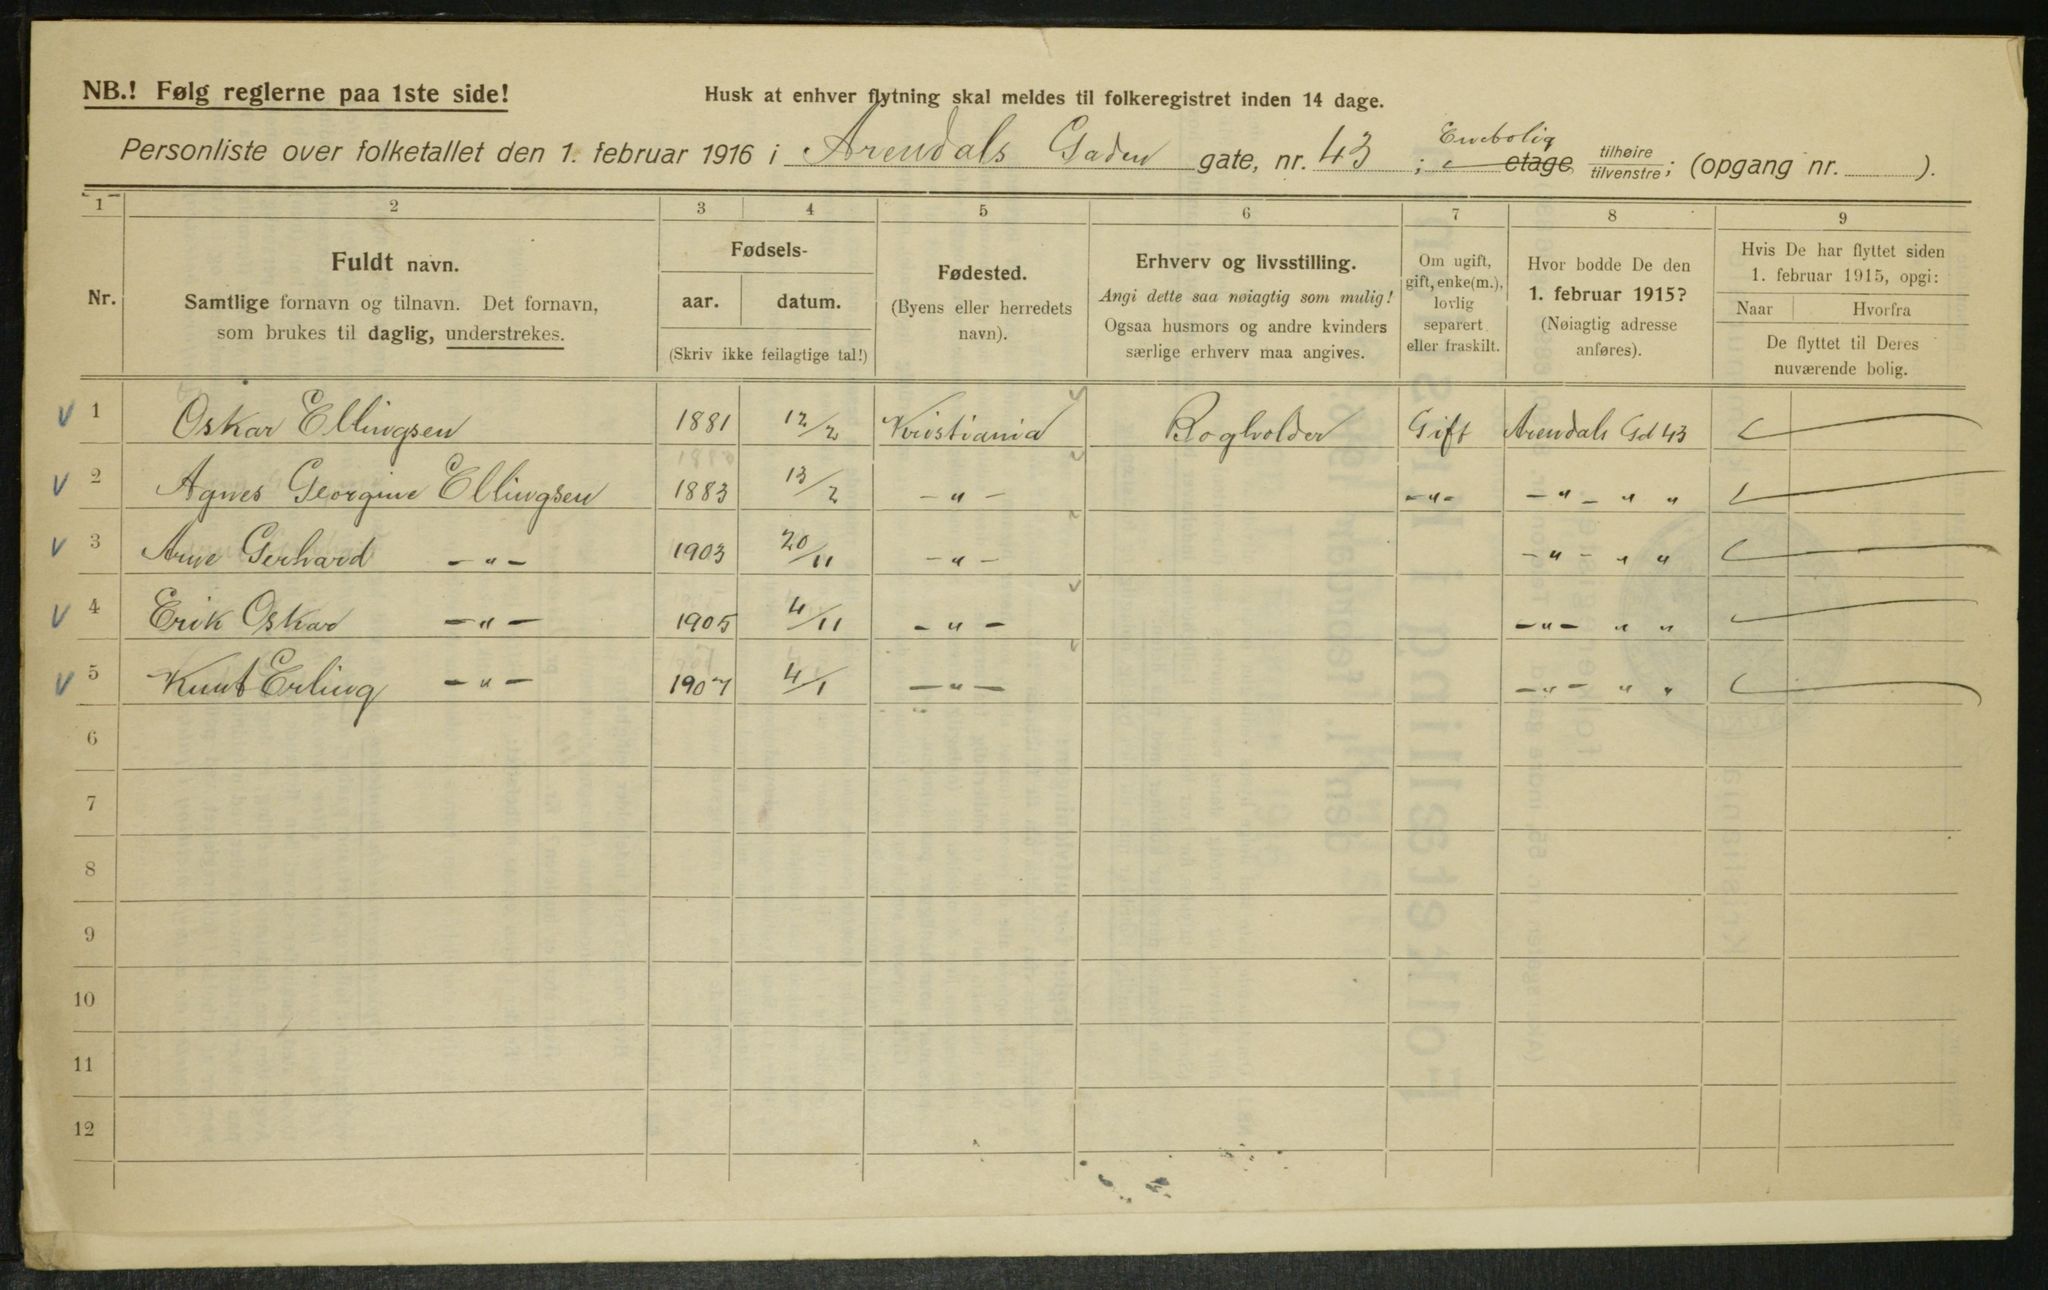 NB.! Følg reglerne paa 1ste side!
Husk at enhver flytning skal meldes til folkeregistret inden 14 dage.
Personliste over folketallet den 1. februar 1916 i Arendals Gaden gate, nr. 43; Enebolig etage, tilhøire/tilvenstre; (opgang nr. ).
1 2 3 4 5 6 7 8 9
Nr.
Fuldt navn.
Samtlige fornavn og tilnavn. Det fornavn,
som brukes til daglig, understrekes.
Fødsels-
aar. datum.
(Skriv ikke feilagtige tal!)
Fødested.
(Byens eller herredets
navn).
Erhverv og livsstilling.
Angi dette saa nøiagtig som mulig!
Ogsaa husmors og andre kvinders
særlige erhverv maa angives.
Om ugift,
gift, enke(m.),
lovlig
separert
eller fraskilt.
Hvor bodde De den
1. februar 1915?
(Nøiagtig adresse
anføres).
Hvis De har flyttet siden
1. februar 1915, opgi:
Naar Hvorfra
De flyttet til Deres
nuværende bolig.
1 Oskar Ellingsen 1881 12/2 Kristiania Bogholder Gift Arendals Gd 43
2 Agnes Georgine Ellingsen 1883 13/2 -"- -"- -"- " "
3 Arne Gerhard -"- 1903 20/11 -"- -"- " "
4 Erik Oskar -"- 1905 4/11 -"- -"- " "
5 Knut Erling -"- 1907 4/1 -"- -"- " "
6
7
8
9
10
11
12